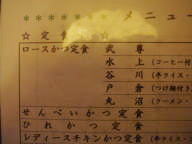 ＊＊＊＊＊＊ メニュー
☆定食☆
ロースかつ定食 武尊
水上(コーヒー付
谷川(冬ライス・
戸倉(つけ麺付き)
丸沼(ラーメン・
せんべいかつ定食
ひれかつ定食
レディースチキンかつ定食(冬ライス